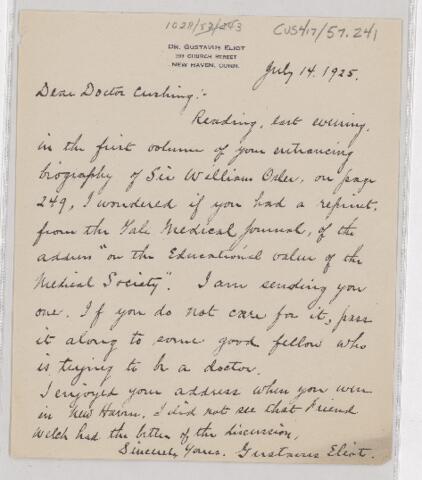 1028/52/243
CUS417/57.241
DR. GUSTAVUS ELIOT
CHURCH STREET
NEW HAVEN, CONN.
July 14. 1925.
Dear Doctor Cushing:-
Reading, last evening,
in the first volume of your entrancing
biography of Sir William Osler, on page
249, I wondered if you had a reprint,
from the Yale Medical Journal, of the
address "on the Educational value of the
Medical Society". I am sending you
one. If you do not care for it, pass
it along to some good fellow who
is trying to be a doctor.
I enjoyed your address when you were
in New Haven. I did not see that Friend
Welch had the better of the discussion,
Sincerely Yours. Gustavus Eliot.